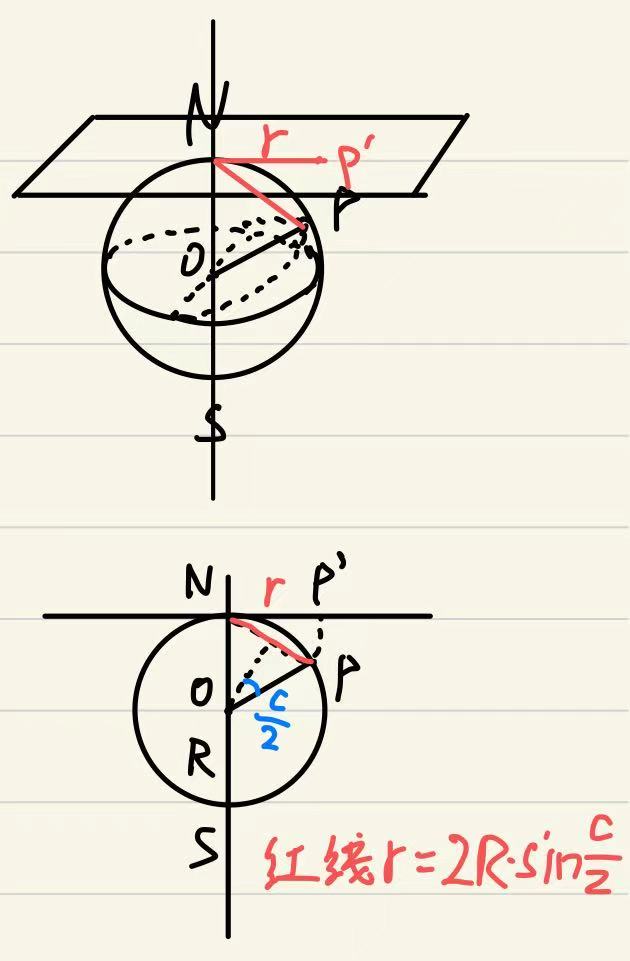 N
r
P'
P
O
S
N
r
P'
P
O
c/2
R
S
红线r=2R·sin c/2